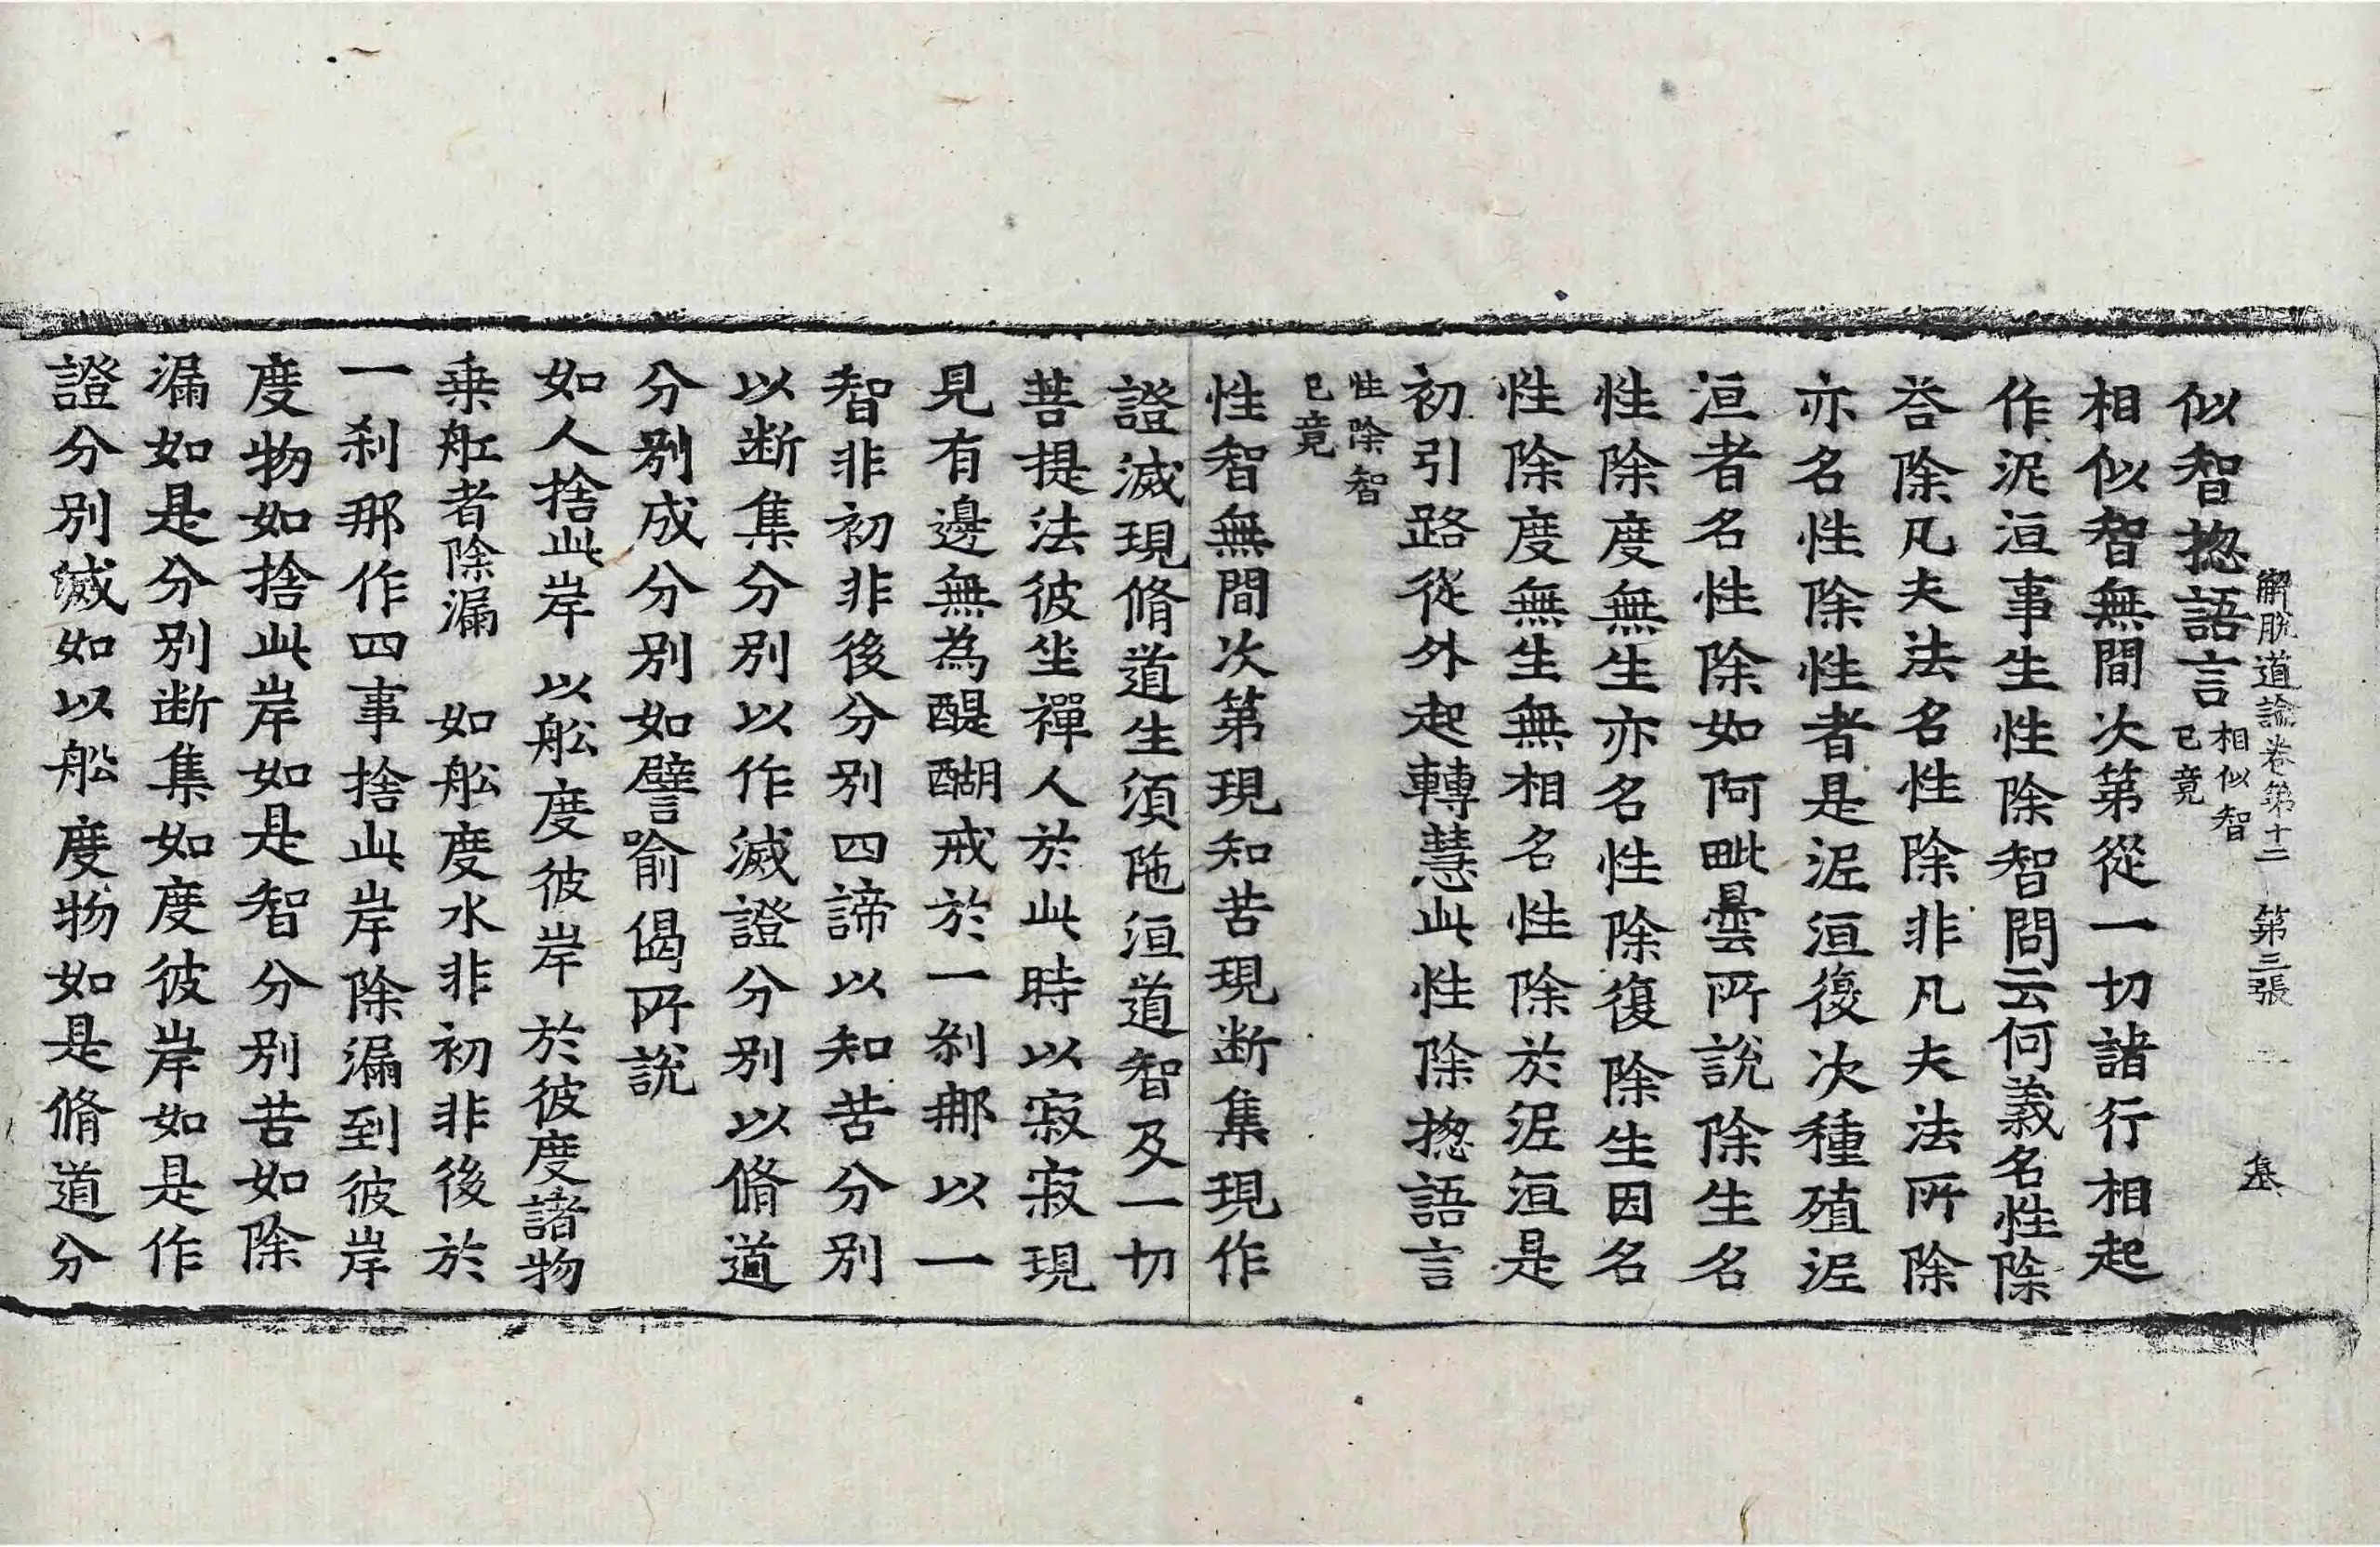 解脫道論卷第十二 第三張 基
似智揔語言相似智已竟
相似智無間次第從一切諸行相起
作泥洹事生性除智問云何義名性除
荅除凡夫法名性除非凡夫法所除
亦名性除性者是泥洹復次種殖泥
洹者名性除如阿毗曇所說除生名
性除度無生亦名性除復除生因名
性除度無生無相名性除於泥洹是
初引路從外起轉慧此性除揔語言
性除智已竟
性智無間次第現知苦現断集現作
證滅現脩道生須陁洹道智及一切
菩提法彼坐禪人於此時以寂寂現
見有邊無為醍醐戒於一刹那以一
智非初非後分別四諦以知苦分別
以断集分別以作滅證分別以脩道
分別成分別如譬喻偈所說
如人捨此岸 以舩度彼岸 於彼度諸物
乗舡者除漏 如舩度水非初非後於
一刹那作四事捨此岸除漏到彼岸
度物如捨此岸如是智分別苦如除
漏如是分別断集如度彼岸如是作
證分別滅如以舩度物如是脩道分